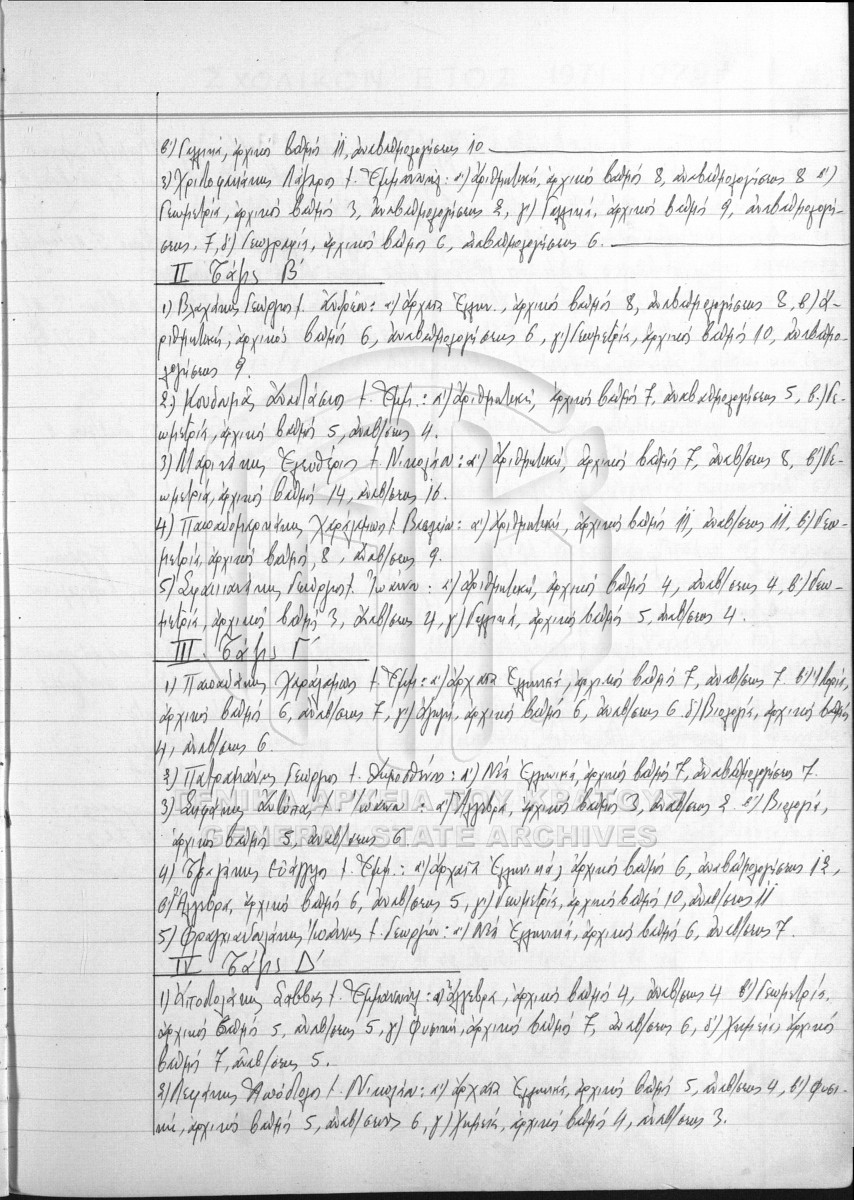 β') Γαλλικά, ἀρχικός βαθμός 11, ἀναβαθμολογήσεως 10
3) Χριστοφακάκης Λάζαρος τ. Ἐμμανουήλ: α') ἀριθμητική, ἀρχικός βαθμός 8, ἀναβαθμολογήσεως 8 β')
Γεωμετρία, ἀρχικός βαθμός 3, ἀναβαθμολογήσεως 2, γ') Γαλλικά, ἀρχικός βαθμός 9, ἀναβαθμολογή-
σεως 7, δ') Γεωγραφία, ἀρχικός βαθμός 6, ἀναβαθμολογήσεως 6.
II Τάξις Β'
1) Βλαχάκης Γεώργιος τ. Ἀνδρέου: α') ἀρχαῖα Ἑλλην., ἀρχικός βαθμός 8, ἀναβαθμολογήσεως 8, β') Ἀ-
ριθμητική, ἀρχικός βαθμός 6, ἀναβαθμολογήσεως 6, γ') Γεωμετρία, ἀρχικός βαθμός 10, ἀναβαθμο-
λογήσεως 9.
2) Κουδουμᾶς Ἀναστάσιος τ. Ἐμμ.: α') ἀριθμητική, ἀρχικός βαθμός 7, ἀναβαθμολογήσεως 5, β') Γε-
ωμετρία, ἀρχικός βαθμός 5, ἀναβ/σεως 4.
3) Μαρινάκης Ἐλευθέριος τ. Νικολάου: α') ἀριθμητική, ἀρχικός βαθμός 7, ἀναβ/σεως 8, β') Γε-
ωμετρία, ἀρχικός βαθμός 14, ἀναβ/σεως 16.
4) Χαράλαμπος τ. Βασιλείου: α') ἀριθμητική, ἀρχικός βαθμός 11, ἀναβ/σεως 11, β') Γεω-
μετρία, ἀρχικός βαθμός, 8, ἀναβ/σεως 9.
5) Γεώργιος τ. Ἰωάννου: α') ἀριθμητική, ἀρχικός βαθμός 4, ἀναβ/σεως 4, β') Γεω-
μετρία, ἀρχικός βαθμός 3, ἀναβ/σεως 4, γ') Γαλλικά, ἀρχικός βαθμός 5, ἀναβ/σεως 4.
III. Τάξις Γ'
1) Χαράλαμπος τ. Ἐμμ.: α') ἀρχαῖα Ἑλληνικά, ἀρχικός βαθμός 7, ἀναβ/σεως 7. β')
ἀρχικός βαθμός 6, ἀναβ/σεως 7, γ') ἀρχικός βαθμός 6, ἀναβ/σεως 6 δ') Βιολογία, ἀρχικός βαθμός
4, ἀναβ/σεως 6.
2) Γεώργιος τ. Δημοσθένους: α') Νέα Ἑλληνικά, ἀρχικός βαθμός 7, ἀναβαθμολογήσεως 7.
3) Σηφάκης τ. Ἰωάννου: α') Ἄλγεβρα, ἀρχικός βαθμός 3, ἀναβ/σεως 2. β') Βιολογία,
ἀρχικός βαθμός 5, ἀναβ/σεως 6
4) Εὐάγγελος τ. Ἐμμ.: α') ἀρχαῖα Ἑλληνικά, ἀρχικός βαθμός 6, ἀναβαθμολογήσεως 12,
β') Ἄλγεβρα, ἀρχικός βαθμός 6, ἀναβ/σεως 5, γ') Γεωμετρία, ἀρχικός βαθμός 10, ἀναβ/σεως 11
5) Φραγκιαδουλάκης Ἰωάννης τ. Γεωργίου: α') Νέα Ἑλληνικά, ἀρχικός βαθμός 6, ἀναβ/σεως 7.
IV Τάξις Δ'
1) Ἀποστολάκης Σάββας τ. Ἐμμανουήλ: α') Ἄλγεβρα, ἀρχικός βαθμός 4, ἀναβ/σεως 4 β') Γεωμετρία,
ἀρχικός βαθμός 5, ἀναβ/σεως 5, γ') Φυσική, ἀρχικός βαθμός 7, ἀναβ/σεως 6, δ') Χημεία, ἀρχικός
βαθμός 7, ἀναβ/σεως 5.
2) Ἀπόστολος τ. Νικολάου: α') ἀρχαῖα Ἑλληνικά, ἀρχικός βαθμός 5, ἀναβ/σεως 4, β') Φυσι-
κή, ἀρχικός βαθμός 5, ἀναβ/σεως 6, γ') Χημεία, ἀρχικός βαθμός 4, ἀναβ/σεως 3.
ΓΕΝΙΚΑ ΑΡΧΕΙΑ ΤΟΥ ΚΡΑΤΟΥΣ
GENERAL STATE ARCHIVES